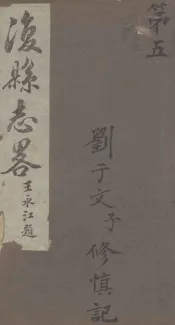 第五
復縣志畧
王永江題
劉于文予修慎記